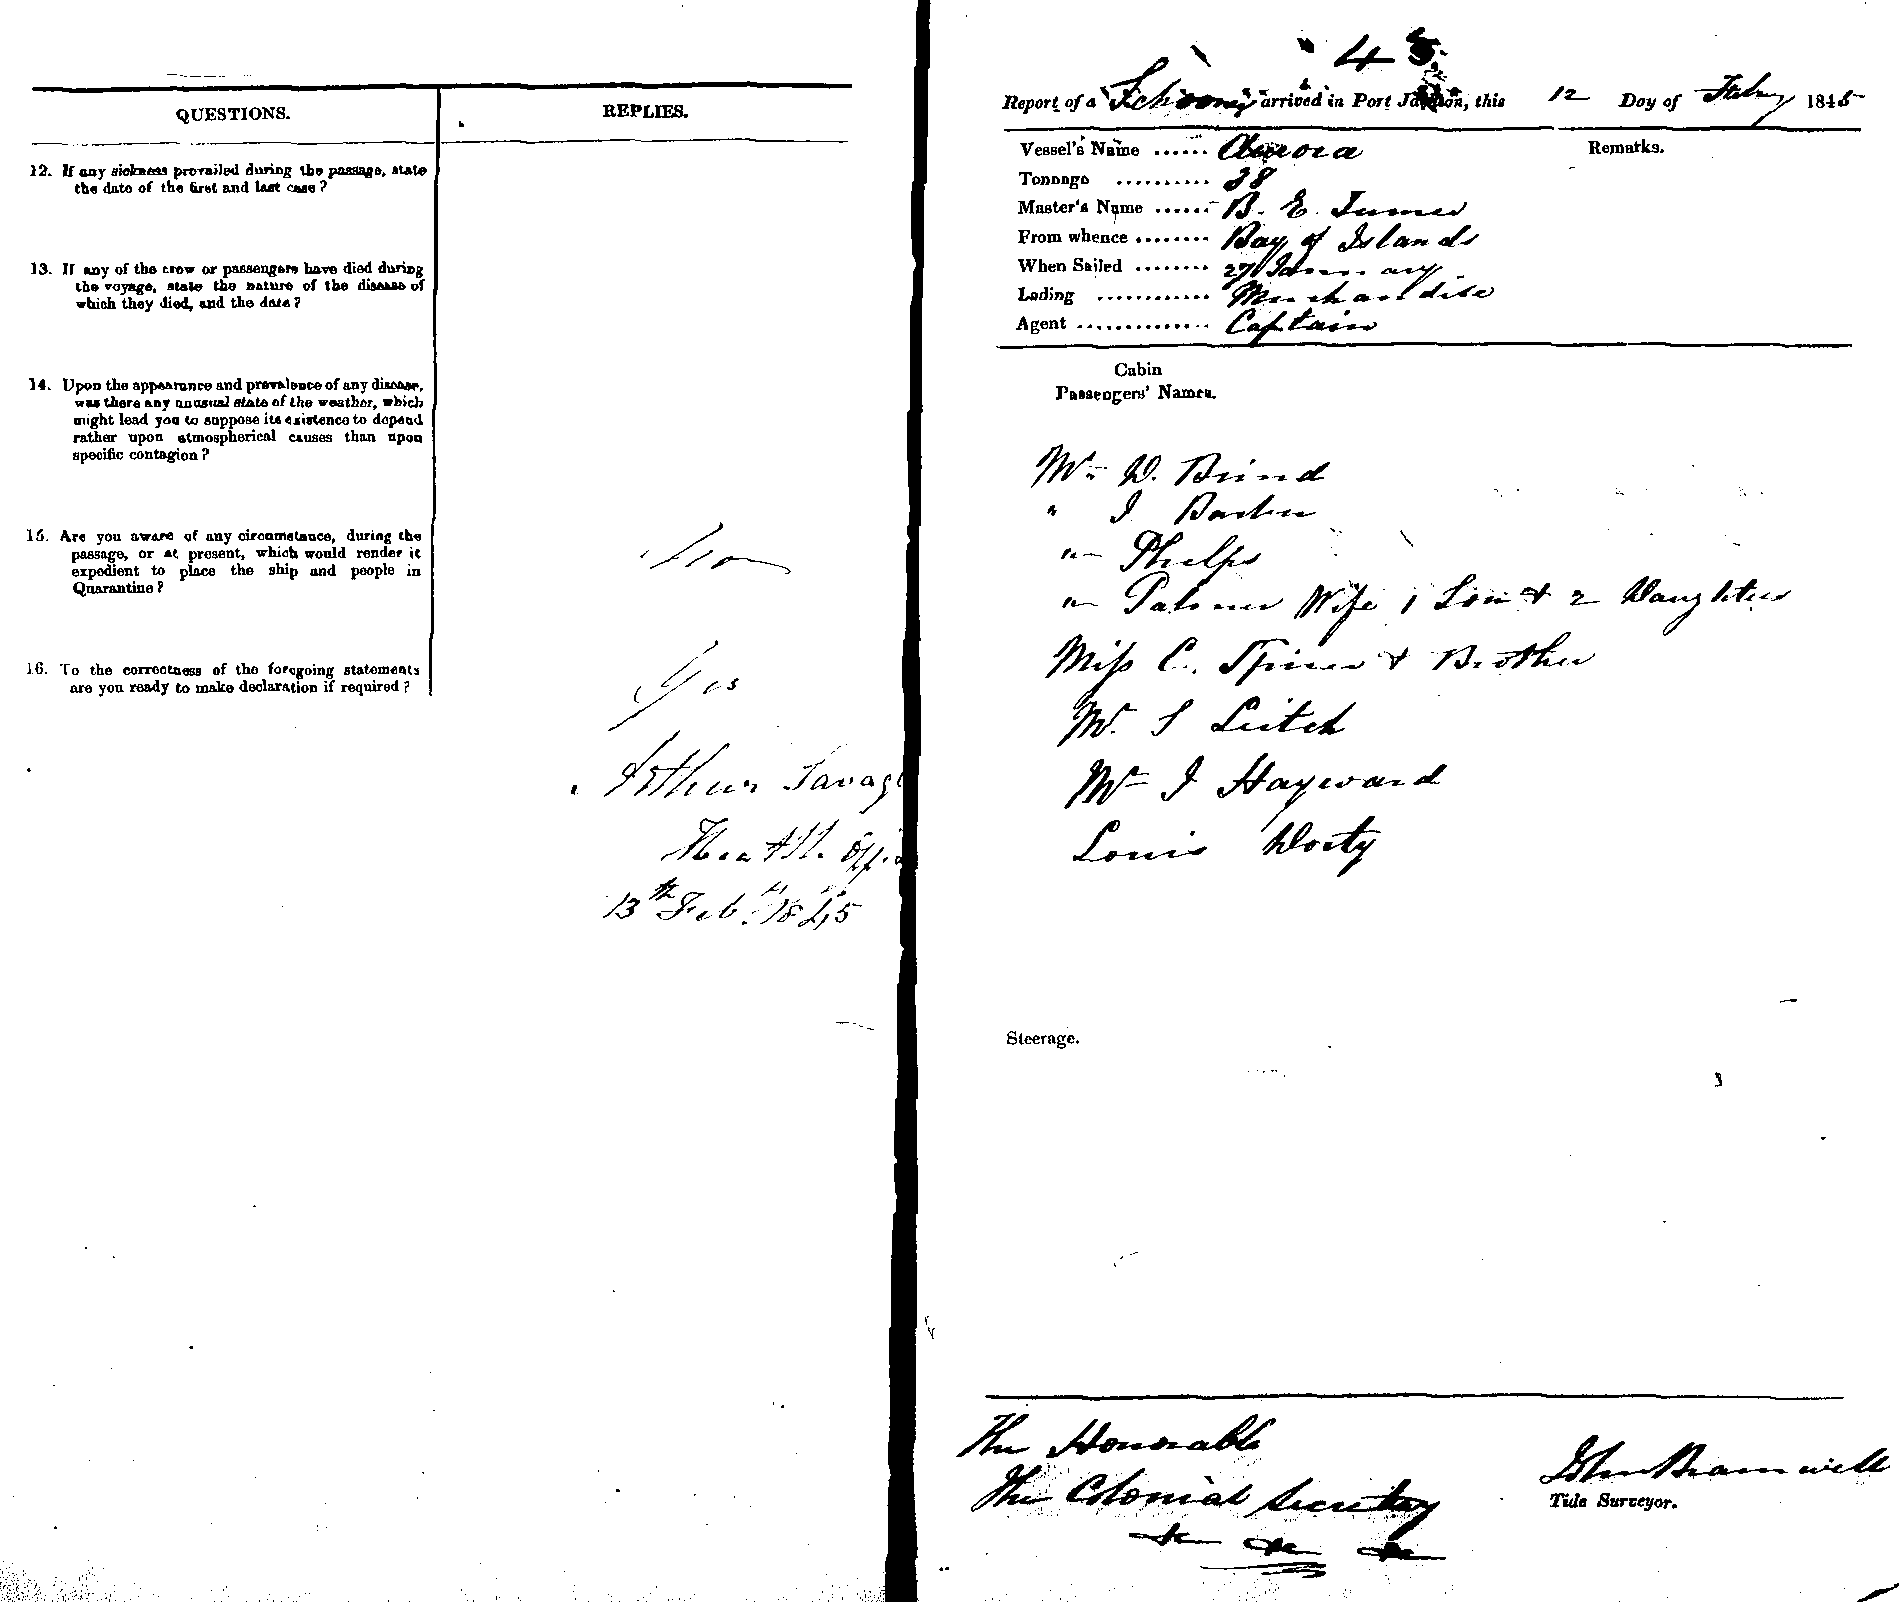 QUESTIONS. REPLIES.
12. If any sickness prevailed during the passage, state
the date of the first and last case?
13. If any of the crew or passengers have died during
the voyage, state the nature of the disease of
which they died, and the date?
14. Upon the appearance and prevalence of any disease,
was there any unusual state of the weather, which
might lead you to suppose its existence to depend
rather upon atmospherical causes than upon
specific contagion?
15. Are you aware of any circumstance, during the
passage, or at present, which would render it
expedient to place the ship and people in
Quarantine?
16. To the correctness of the foregoing statements
are you ready to make declaration if required?
Yes
Arthur Savage
Health Offi
13th Feb. 1845
43.
Report of a Schooner arrived in Port Jackson, this 12 Day of Feby 1845
Vessel's Name ...... Aurora Remarks.
Tonnage .......... 38
Master's Name ...... B. E.
From whence ........ Bay of Islands
When Sailed ........ 27 January
Lading ............ Merchandise
Agent .............. Captain
Cabin
Passengers' Names.
Mr. W. Brind
" J
" Phelps
" Palmer Wife 1 Son & 2 Daughters
Miss C. Spicer & Brother
Mr. S Leitch
Mr J Hayward
Louis Dorty
Steerage.
The Honorable
The Colonial Secretary
John Bramwell
Tide Surveyor.